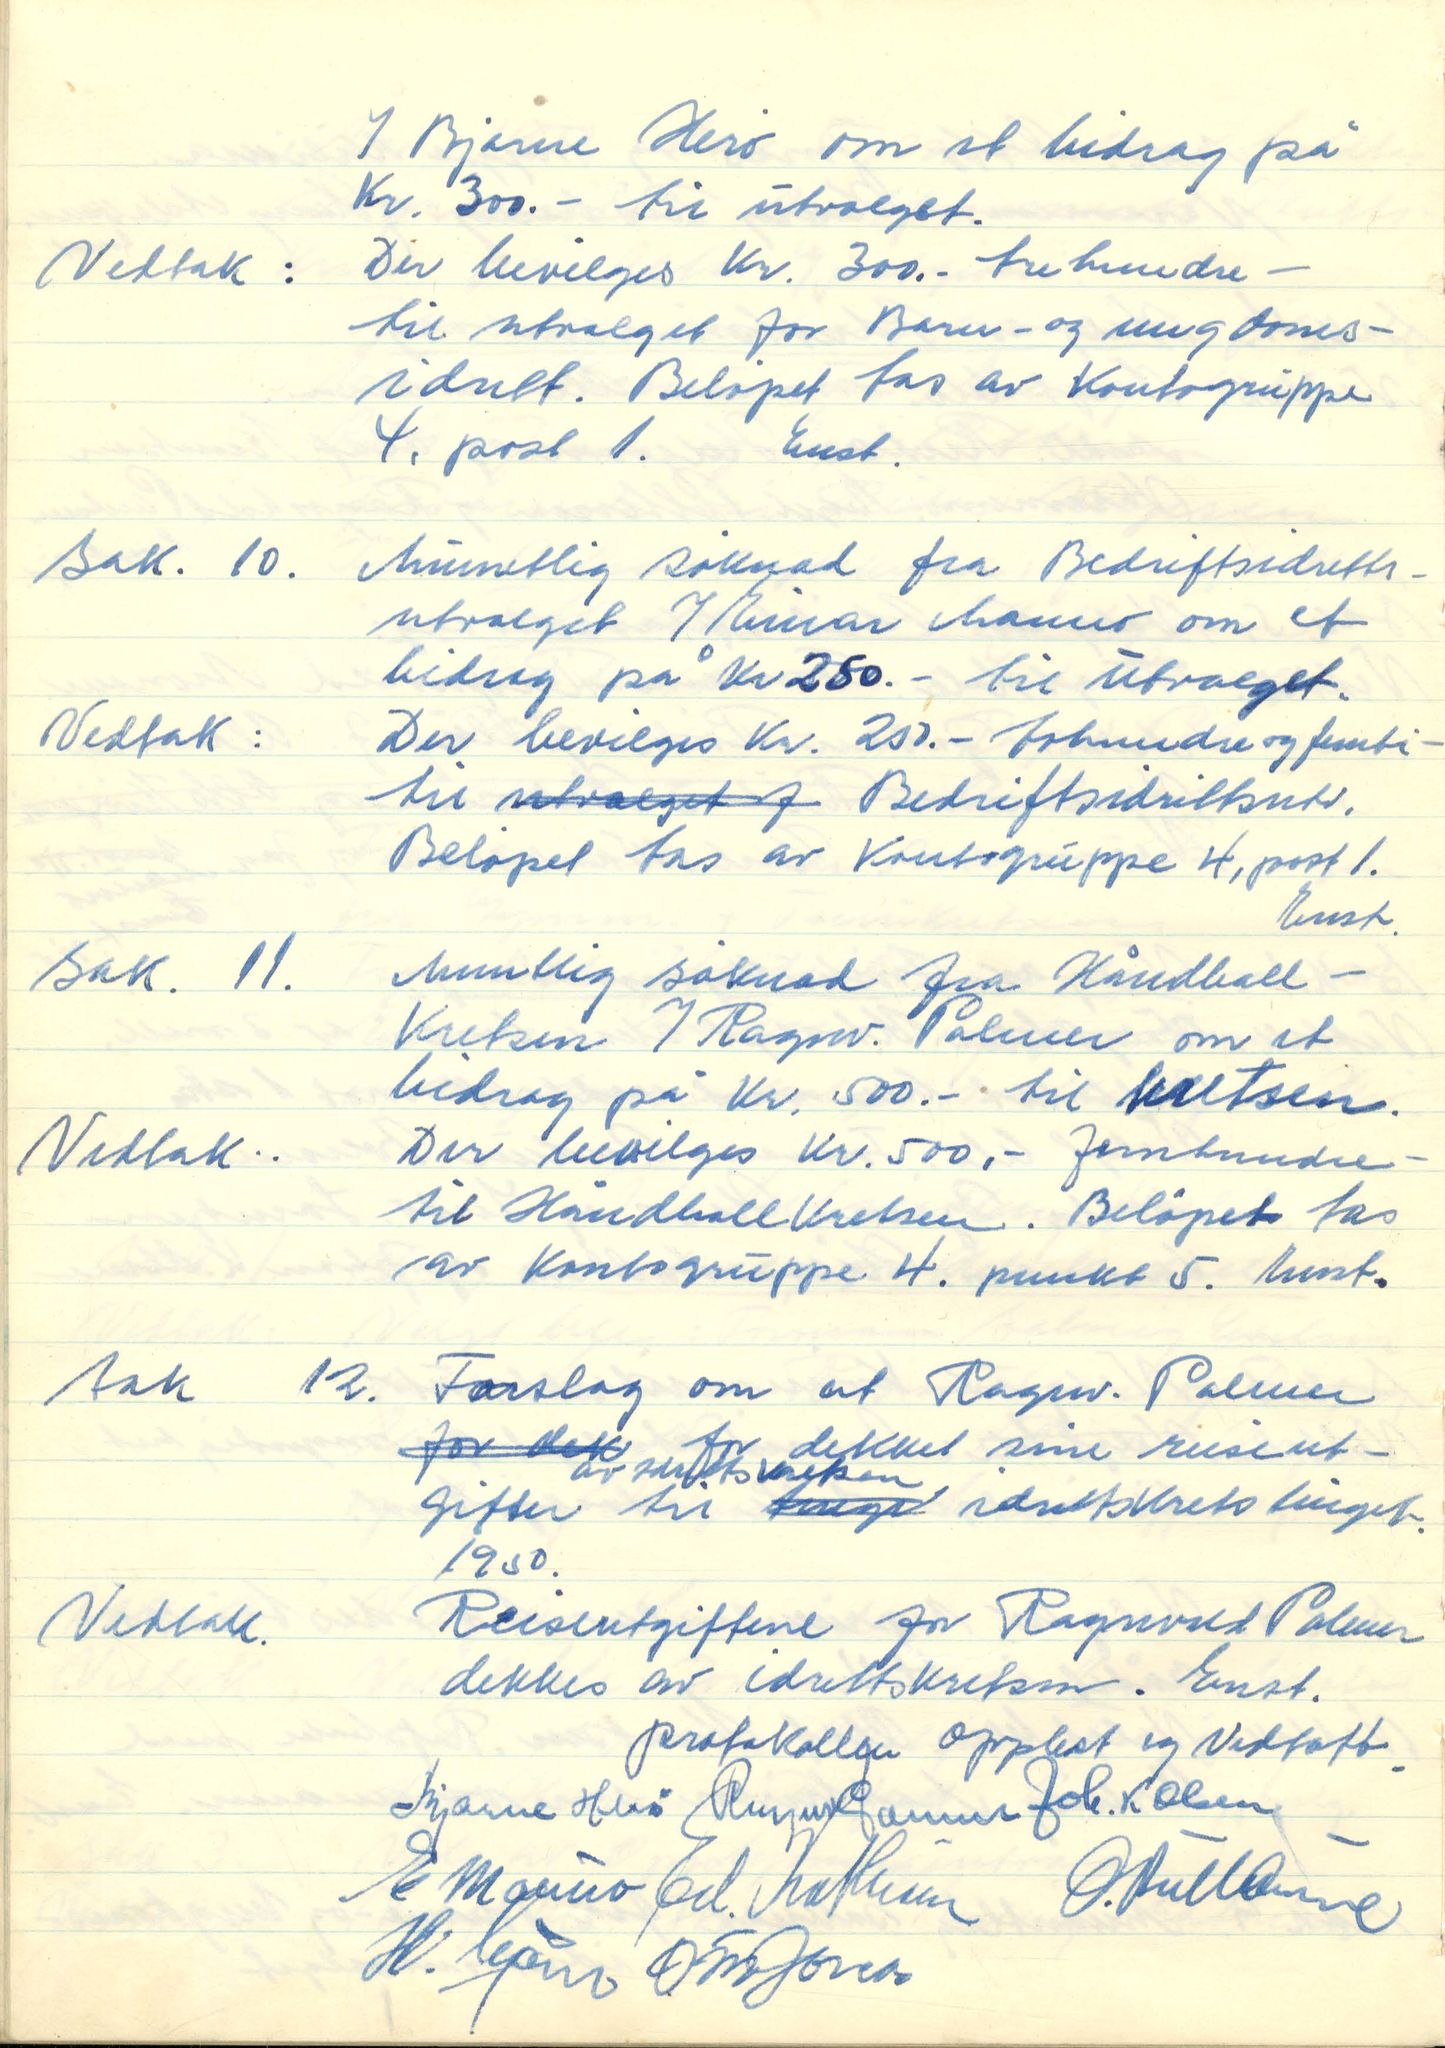 / Bjarne Herö om et bidrag på
Kr. 300.- til utvalget.
Vedtak: Der bevilges Kr. 300.- trehundre -
til utvalget for Barn- og ungdoms-
idrett. Belöpet tas av Kontogruppe
4, post 1. Enst.
Sak. 10. Muntlig söknad fra Bedriftsidretts-
utvalget / Einar Mauno om et
bidrag på Kr 250.- til Utvalget.
Vedtak: Der bevilges Kr. 250.- tohundreogfemti-
til utvalget f Bedriftsidrettsutv.
Belöpet tas av Kontogruppe 4, post 1.
Enst.
Sak. 11. Muntlig söknad fra Håndball-
Kretsen / Ragnv. Palmer om et
bidrag på Kr. 500.- til kretsen.
Vedtak.. Der bevilges Kr. 500,- femhundre-
til HåndballKretsen. Belöpet tas
av Kontogruppe 4. punkt 5. Enst.
Sak 12. Forslag om at Ragnv. Palmer
for dek får dekket sine reiseut-
av idrettskretsen
gifter til tinge idrettskretstinget.
1950.
Vedtak. Reiseutgiftene for Ragnvald Palmer
dekkes av idrettskretsen. Enst.
protokollen opplest og Vedtatt.
Bjarne Herö Ragnv Palmer Joh. K Olsen
E Mauno Ed. Mathisen
H.